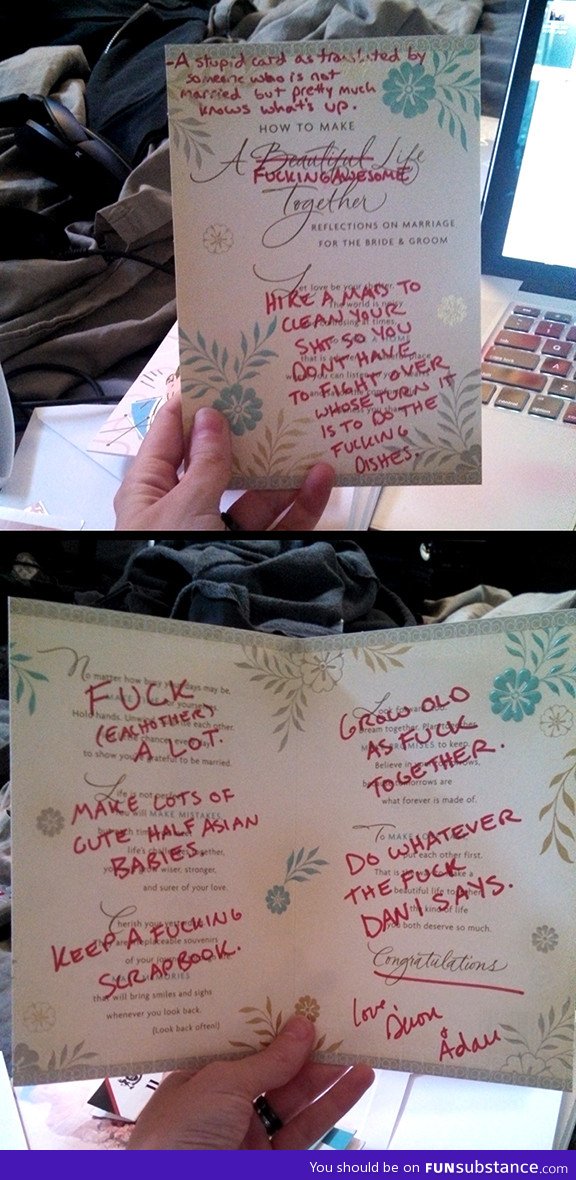 -A stupid card as translated by
someone who is not
married but pretty much
knows what's up.
HOW TO MAKE
A Beautiful Life
FUCKING AWESOME
Together
REFLECTIONS ON MARRIAGE
FOR THE BRIDE & GROOM
Let love be your
HIRE A MAID TO
The world is noisy
CLEAN YOUR
at times,
SHIT SO YOU
DON'T HAVE
TO FIGHT OVER
you can listen
WHOSE TURN IT
IS TO DO THE
FUCKING
DISHES.
No matter how busy your days may be,
FUCK
Hold hands. each other.
(EACHOTHER)
A LOT.
to show you're grateful to be married.
Life is not perfect.
MAKE LOTS OF
You will MAKE MISTAKES,
CUTE HALF ASIAN
life's challenges together,
BABIES
you grow wiser, stronger,
and surer of your love.
Cherish your yesterdays
KEEP A FUCKING
are irreplaceable souvenirs
of your journey
SCRAPBOOK.
MAKE MEMORIES
that will bring smiles and sighs
whenever you look back.
(Look back often!)
Look forward, too.
GROW OLD
Dream together. Plan together.
AS FUCK
PROMISES to keep.
Believe in your tomorrows,
TOGETHER.
because tomorrows are
what forever is made of.
To MAKE LOVE
DO WHATEVER
put each other first.
That is make a
THE FUCK
beautiful life together
DANI SAYS.
the kind of life
you both deserve so much.
Congratulations
Love,
&
Adam
You should be on FUNsubstance.com